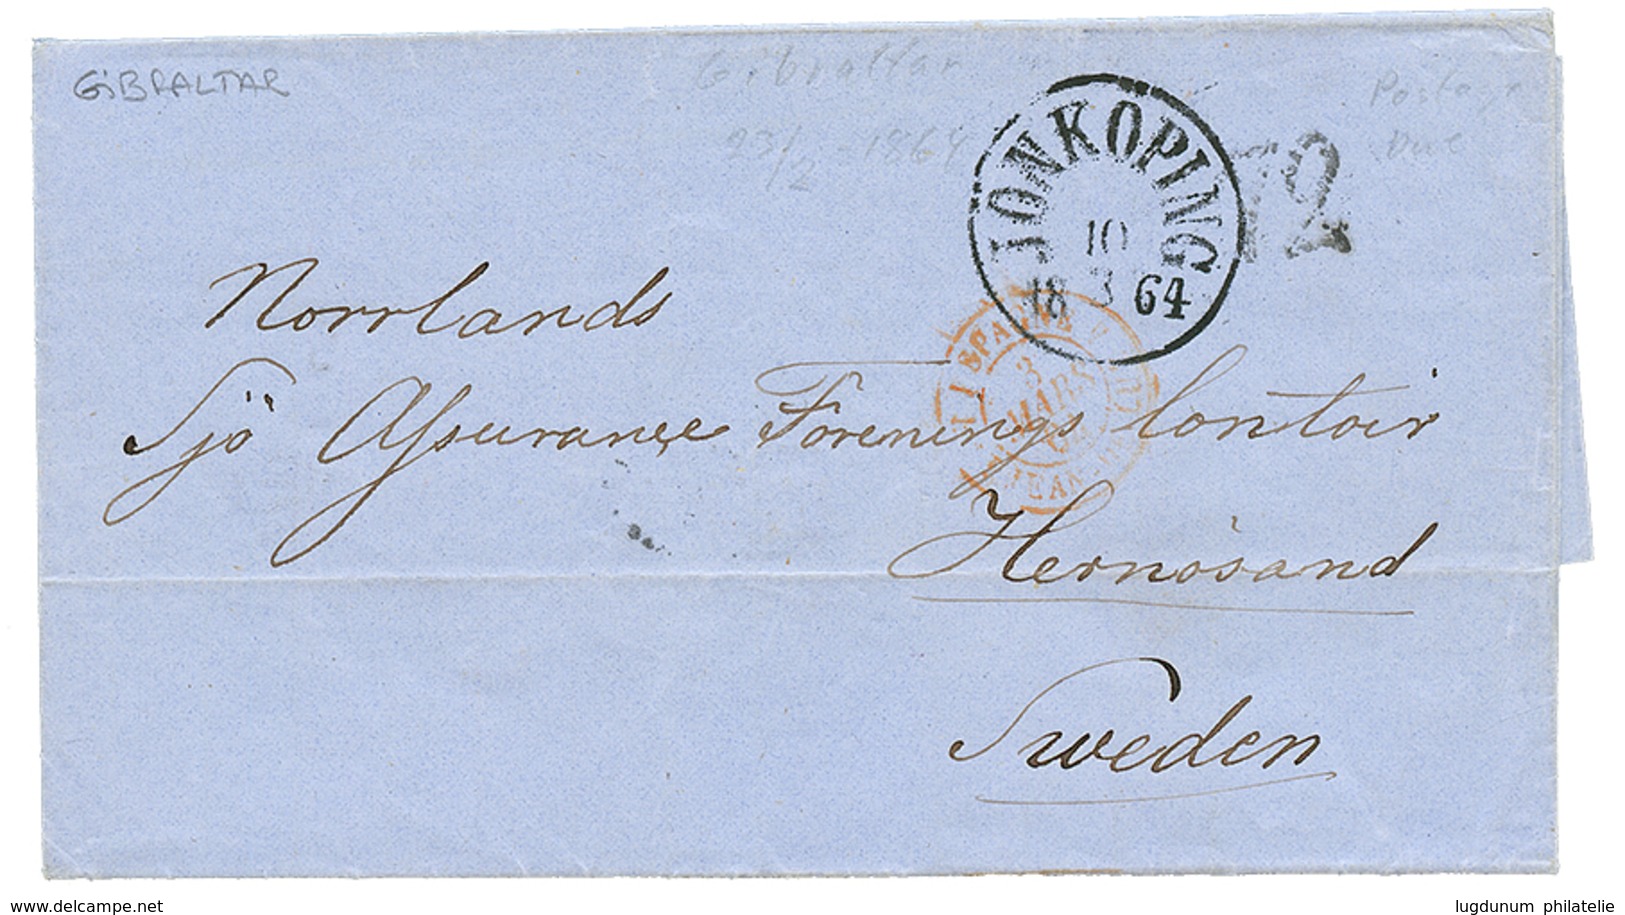 GIBRALTAR
Gibraltar
23/2 - 1864
Postage
Due
12
JONKOPING
10
18 3 64
ESPAGNE
3
MARS
64
Norrlands
Sjö Assurance Forenings Contoir
Hernösand
Sweden
www.delcampe.net
lugdunum philatelie